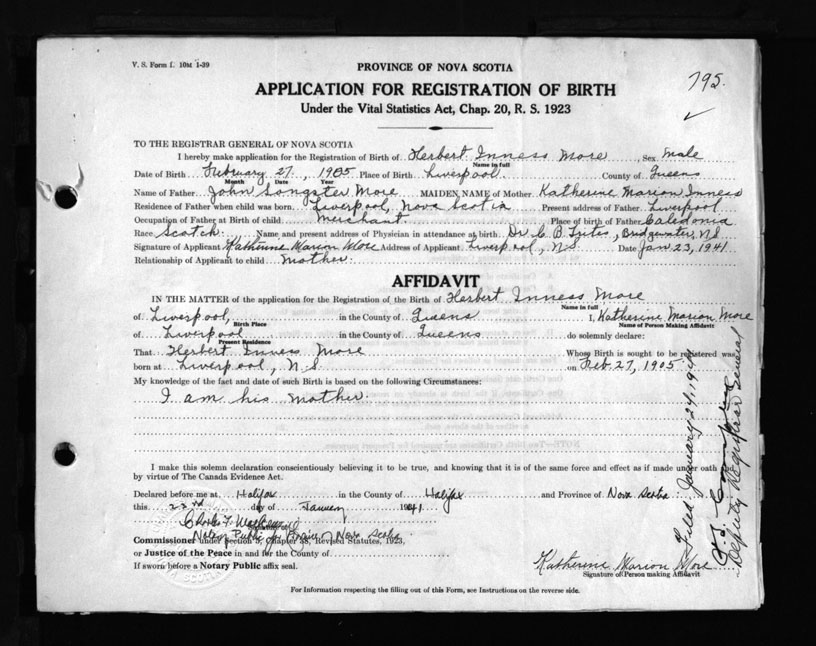 V. S. Form f. 10M 1-39
PROVINCE OF NOVA SCOTIA
795.
APPLICATION FOR REGISTRATION OF BIRTH
Under the Vital Statistics Act, Chap. 20, R. S. 1923
TO THE REGISTRAR GENERAL OF NOVA SCOTIA
I hereby make application for the Registration of Birth of Herbert Inness More Sex Male
Name in full
Date of Birth February 27, 1905 Place of Birth Liverpool County of Queens
Month Date Year
Name of Father John Songster More MAIDEN NAME of Mother Katherine Marion Inness
Residence of Father when child was born Liverpool, Nova Scotia Present address of Father Liverpool
Occupation of Father at Birth of child Merchant Place of birth of Father Caledonia
Race Scotch Name and present address of Physician in attendance at birth Dr. C. B. Bridgewater, N.S.
Signature of Applicant Katherine Marion More Address of Applicant Liverpool, N.S Date Jan 23, 1941
Relationship of Applicant to child Mother.
AFFIDAVIT
IN THE MATTER of the application for the Registration of the Birth of Herbert Inness More
Name in full
of Liverpool, in the County of Queens I, Katherine Marion More
Birth Place Name of Person Making Affidavit
of Liverpool in the County of Queens do solemnly declare:
Present Residence
That Herbert Inness More Whose Birth is sought to be registered was
born at Liverpool, N.S on Feb. 27, 1905
My knowledge of the fact and date of such Birth is based on the following Circumstances:
I am his mother.
I make this solemn declaration conscientiously believing it to be true, and knowing that it is of the same force and effect as if made under oath
by virtue of The Canada Evidence Act.
Declared before me at Halifax in the County of Halifax and Province of Nova Scotia
this day of January 1941
Notary Public Nova Scotia
Commissioner under Section 5, Chapter 38, Revised Statutes, 1923,
or Justice of the Peace in and for the County of
If sworn before a Notary Public affix seal.
Katherine Marion More
Signature of Person making Affidavit
For Information respecting the filling out of this Form, see Instructions on the reverse side.
Filed January 24, 1941
Deputy Registrar General